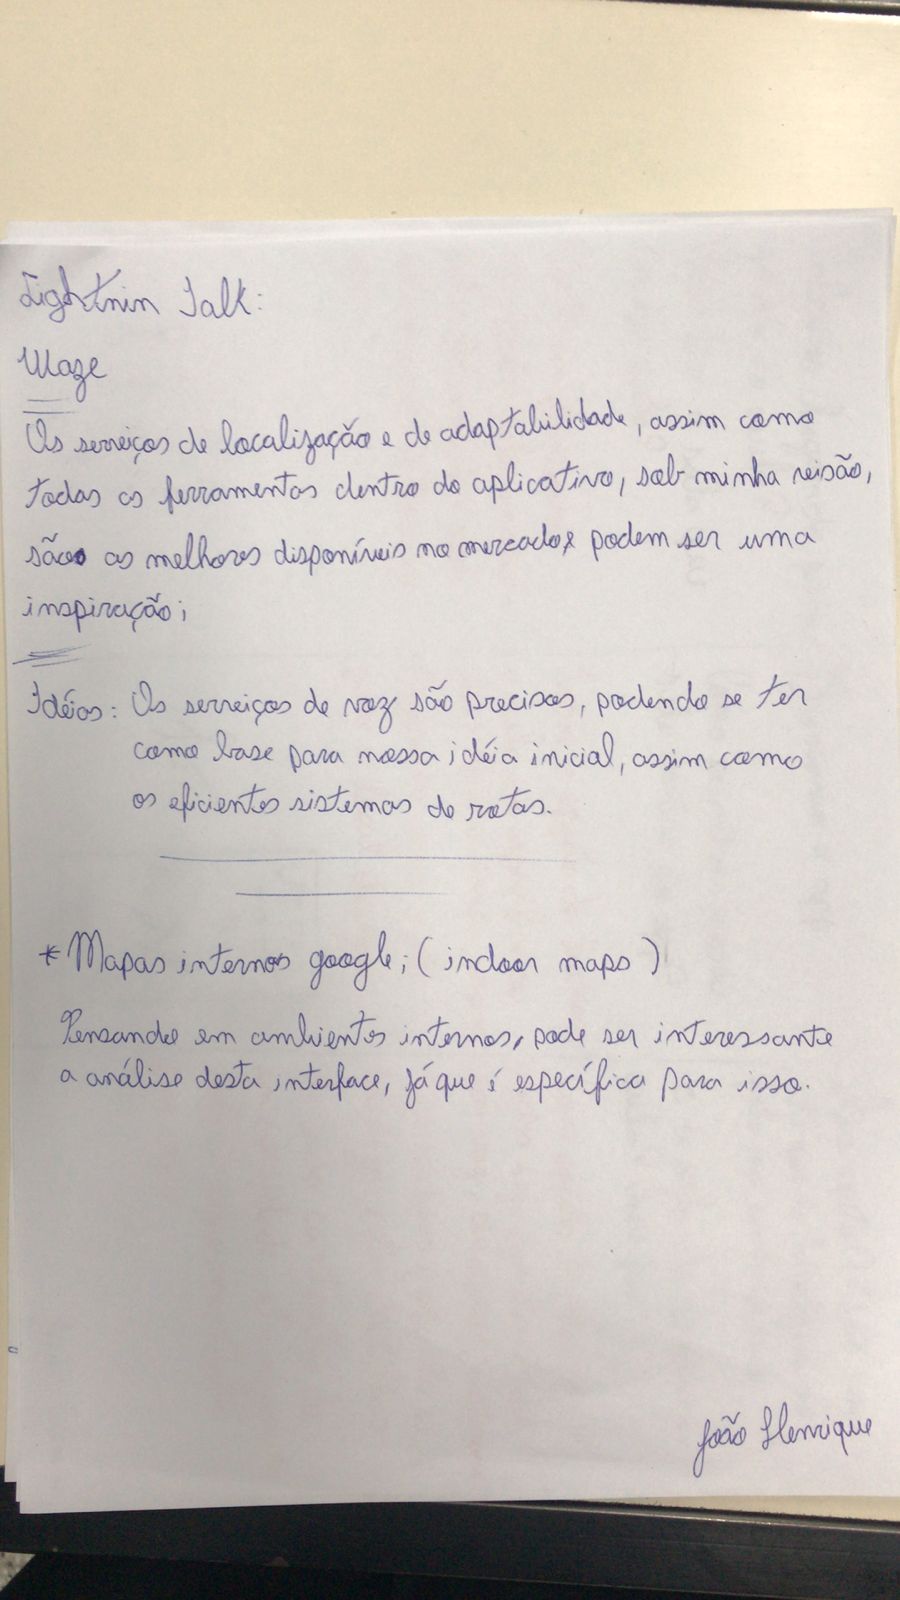 Lightnin Talk:
Waze
Os serviços de localização e de adaptabilidade, assim como
todas as ferramentas dentro do aplicativo, sob minha visão,
são as melhores disponíveis no mercado e podem ser uma
inspiração;
Idéias: Os serviços de voz são precisos, podendo se ter
como base para nossa idéia inicial, assim como
os eficientes sistemas de rotas.
* Mapas internos google; (indoor maps)
Pensando em ambientes internos, pode ser interessante
a análise desta interface, já que é específica para isso.
João Henrique